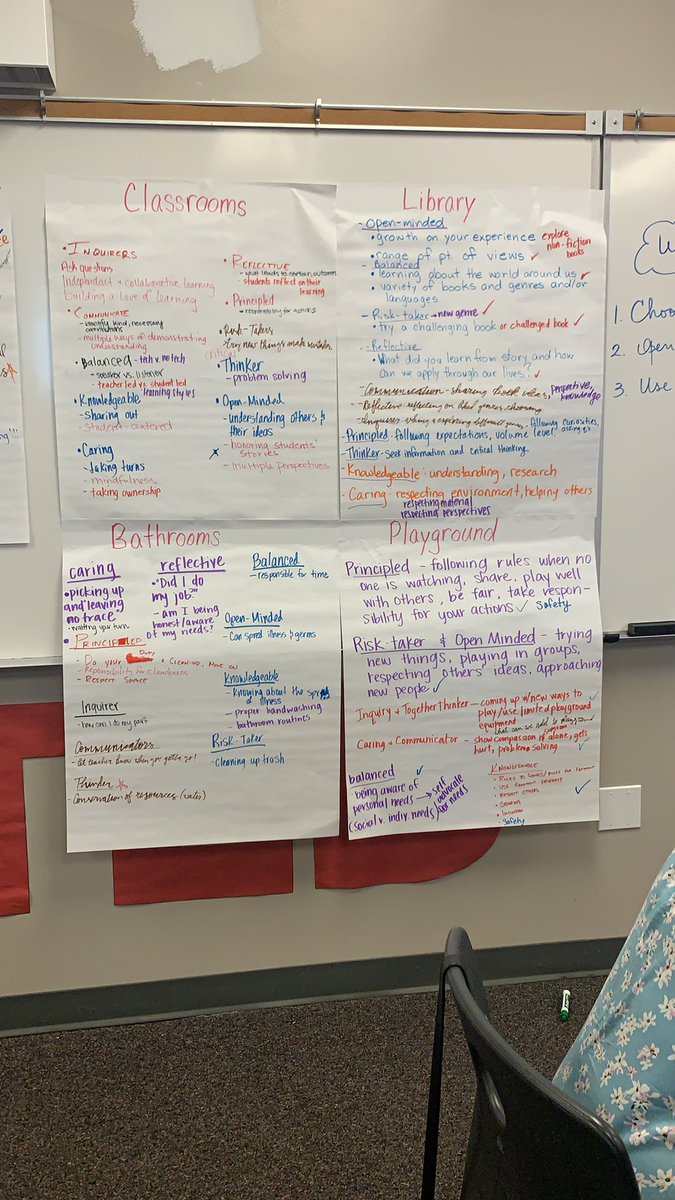 Classrooms
• INQUIRERS
Ask questions
Independent + collaborative learning
building a love of learning
• COMMUNICATE
- identify kind, necessary
contributions
- multiple ways of demonstrating
understanding
• Balanced - tech v. no tech
- speaker vs. listener
- teacher led vs. student led
learning styles
• Knowledgeable
- Sharing out
- student-centered
• Caring
- taking turns
- mindfulness
- taking ownership
• REFLECTIVE
- what leads to certain outcomes
- students reflect on their
learning
• Principled
• responsibility for actions
• Risk-Takers
• try new things make mistakes
critical
• Thinker
- problem solving
• Open-Minded
- understanding others &
their ideas
- honoring students'
stories
- multiple perspectives
Library
- Open-minded
• growth on your experience
explore
non-fiction
books
• range pf pt. of views ✓
- Balanced
• learning about the world around us ✓
• variety of books and genres and/or
languages.
- Risk-taker → new genre ✓
• try a challenging book or challenged book ✓
- Reflective
• What did you learn from story and how
can we apply through our lives? ✓
- Communication - sharing book ideas, perspective,
knowledge
- Reflective - reflecting on
- Inquirer different genres, following curiosities,
asking q's
Principled - following expectations, volume level
Thinker - Seek information and critical thinking
- Knowledgable : understanding, research
- Caring : respecting environment, helping others
respecting material
respecting perspectives
Bathrooms
caring
• picking up
and leaving
no trace.
• waiting your turn
• PRINCIPLED
- Do your Duty + Clean-up, Move on
- Responsibility for cleanliness
- Respect Space
Inquirer
- how can I do my part
Communicators
- let teacher know when you gotta go!
Thinker
- Conservation of resources (water)
reflective
• "Did I do
my job."
- am I being
honest/aware
of my needs?
Balanced
- responsible for time
Open-Minded
- Can spread illness & germs
Knowledgeable
- Knowing about the spread
of illness
- proper handwashing
- bathroom routines
Risk-Taker
- cleaning up trash
Playground
Principled - following rules when no
one is watching, share, play well
with others, be fair, take respon-
sibility for your actions ✓ Safety
Risk-taker & Open Minded - trying
new things, playing in groups,
respecting others' ideas, approaching
new people ✓
Inquiry + Together Thinker - coming up w/new ways to
play/use limited playground
equipment
that can be add to playground
Caring + Communicator - show compassion if someone alone, gets
hurt, problem solving ✓
balanced ✓
- being aware of
personal needs → self
advocate
for needs
(social v. indiv. needs)
KNOWLEDGABLE
• Rules to games/rules for equipment
• Use equipment properly
• Respect others
• Sharing
• Inclusion
• Safety
1. Choo
2. Open
3. Use